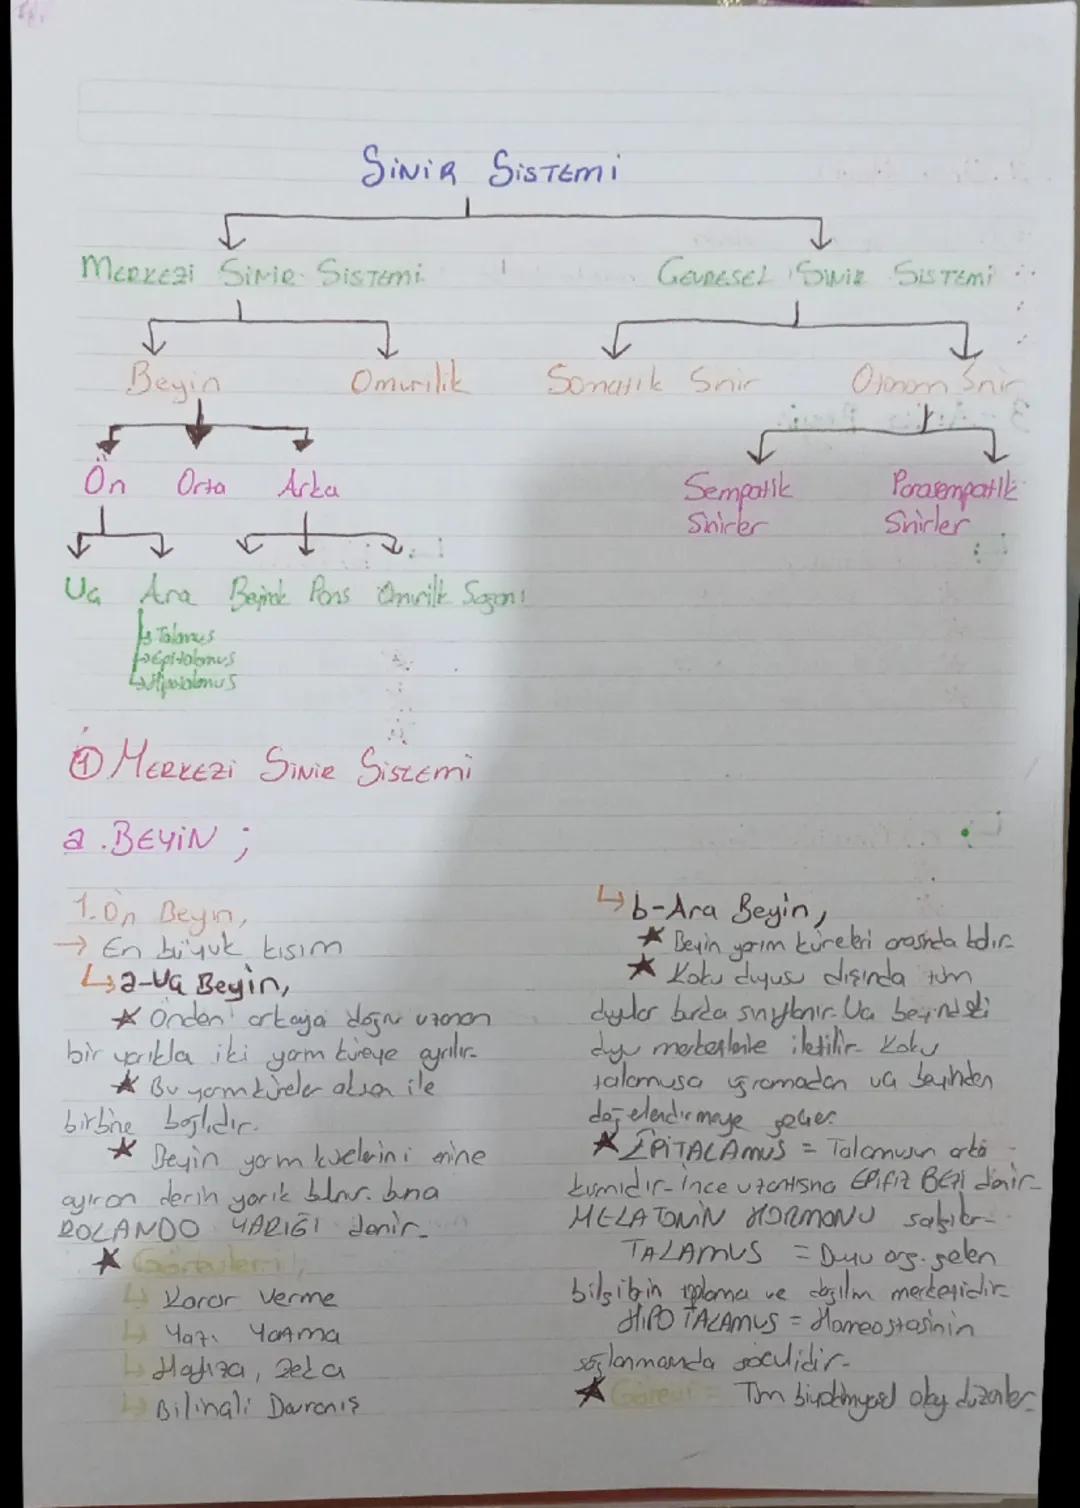 SİNİR SİSTEMİ
MERKEZİ SİNİR SİSTEMİ
ÇEVRESEL SİNİR SİSTEMİ
Beyin
Omurilik
Somatik Sinir
Otonom Sinir
Ön Orta Arka
Sempatik Sinirler
Parasempatik Sinirler
Uç Ara Beyincik Pons Omurilik Soğanı
Talamus
Epitalamus
Hipotalamus
① MERKEZİ SİNİR SİSTEMİ
a. BEYİN ;
1. Ön Beyin,
→ En büyük kısım
↳ a-Uç Beyin,
★ Önden arkaya doğru uzanan
bir yarıkla iki yarım küreye ayrılır.
★ Bu yarım küreler akson ile
birbirine bağlıdır.
★ Beyin yarım kürelerini enine
ayıran derin yarık bulunur. buna
ROLANDO YARIĞI denir.
★ Görevleri;
↳ Karar verme
↳ Yazı Yazma
↳ Hafıza, zeka
↳ Bilinçli Davranış
↳ b-Ara Beyin,
★ Beyin yarım küreleri arasında kalır.
★ Koku duyusu dışında tüm
duyular burda sınıflanır. Uç beyindeki
duyu merkezlerine iletilir. Koku
talamusa uğramadan uç beyinden
değerlendirmeye geçer.
★ EPİTALAMUS = Talamusun arka
kısmıdır. İnce uzantısına EPİFİZ BEZİ denir.
MELATONİN HORMONU salgılar.
TALAMUS = Duyu org. gelen
bilgilerin toplama ve dağılım merkezidir.
HİPOTALAMUS = Homeostasinin
sağlanmasında görevlidir.
★ Görevi = Tüm biyokimyasal olay düzenler.